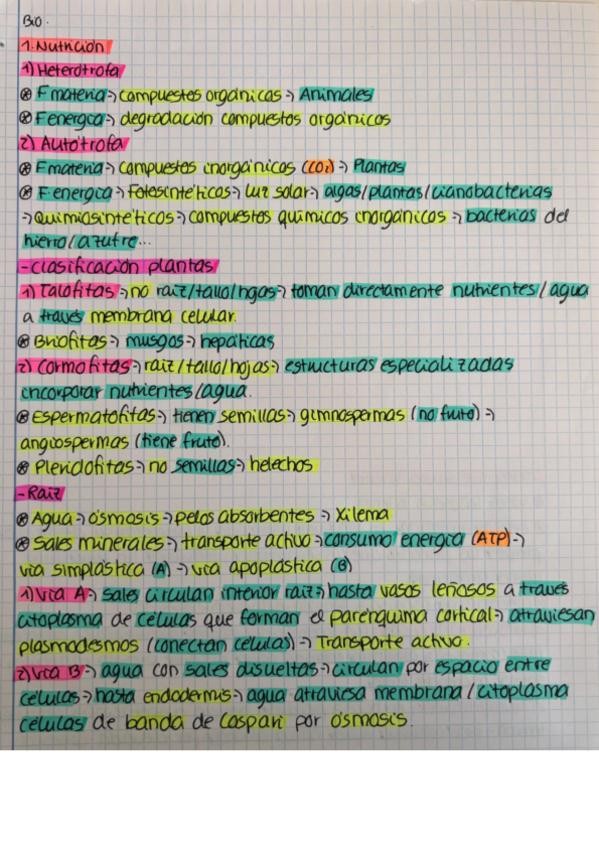 Bio.
1. Nutrición
1) Heterótrofa
⊛ F materia → compuestos orgánicos → Animales
⊛ F energía → degradación compuestos orgánicos
2) Autótrofa
⊛ F materia → compuestos inorgánicos (CO2) → Plantas
⊛ F energía → Fotosintéticos → luz solar → algas/plantas/cianobacterias
→ Quimiosintéticos → compuestos químicos inorgánicos → bacterias del
hierro/azufre...
- Clasificación plantas
1) Talofitas → no raíz/tallo/hojas → toman directamente nutrientes/agua
a través membrana celular.
⊛ Briofitas → musgos → hepáticas
2) Cormofitas → raíz/tallo/hojas → estructuras especializadas
incorporar nutrientes/agua.
⊛ Espermatofitas → tienen semillas → gimnospermas (no fruto) →
angiospermas (tiene fruto).
⊛ Pteridofitas → no semillas → helechos
- Raíz
⊛ Agua → ósmosis → pelos absorbentes → Xilema
⊛ Sales minerales → transporte activo → consumo energía (ATP) →
vía simplástica (A) → vía apoplástica (B)
1) Vía A → sales circulan interior raíz → hasta vasos leñosos a través
citoplasma de células que forman el parénquima cortical → atraviesan
plasmodesmos (conectan células) → Transporte activo.
2) Vía B → agua con sales disueltas → circulan por espacio entre
células → hasta endodermis → agua atraviesa membrana/citoplasma
células de banda de Caspari por ósmosis.